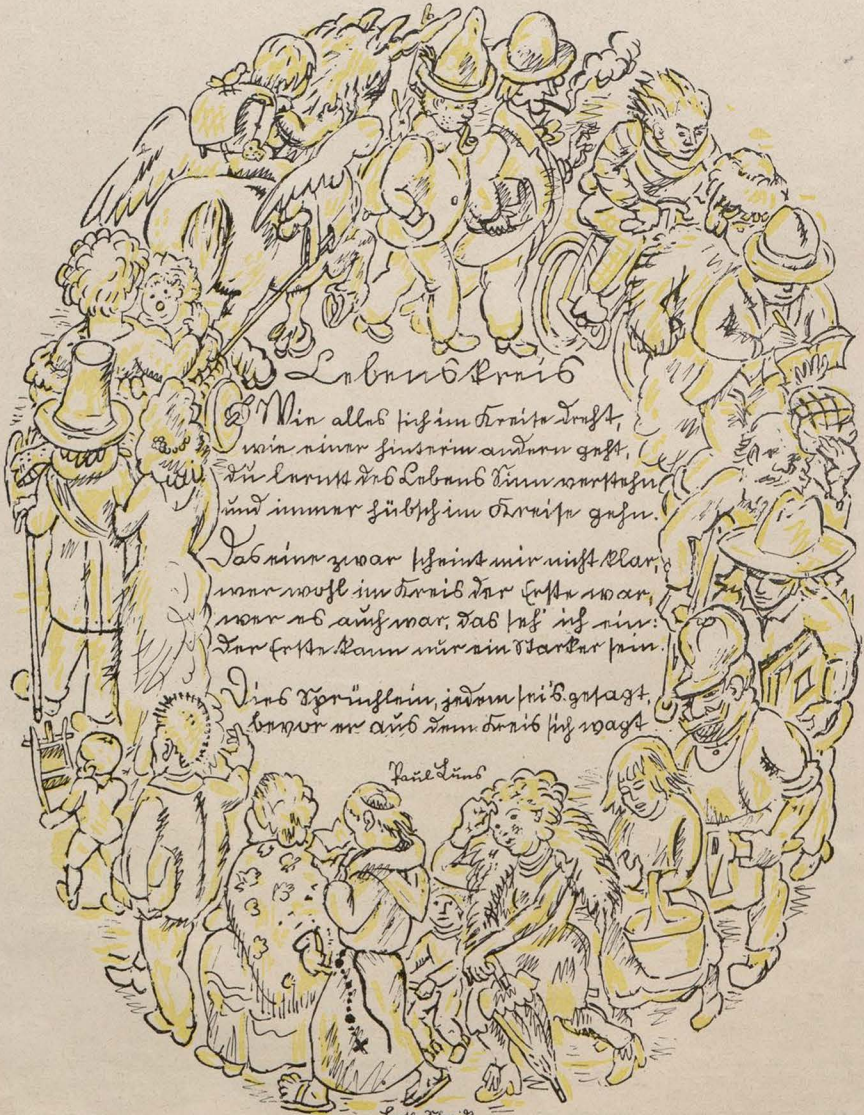 Lebenskreis
Wie alles sich im Kreise dreht,
wie einer hinterm andern geht,
du lernst des Lebens Sinn verstehn
und immer hübsch im Kreise gehn.
Das eine zwar scheint mir nicht klar,
wer wohl im Kreis der Erste war,
wer es auch war, das seh' ich ein:
Der Erste kann nur ein Starker sein.
Dies Sprüchlein, jedem sei's gesagt,
bevor er aus dem Kreis sich wagt
Paul